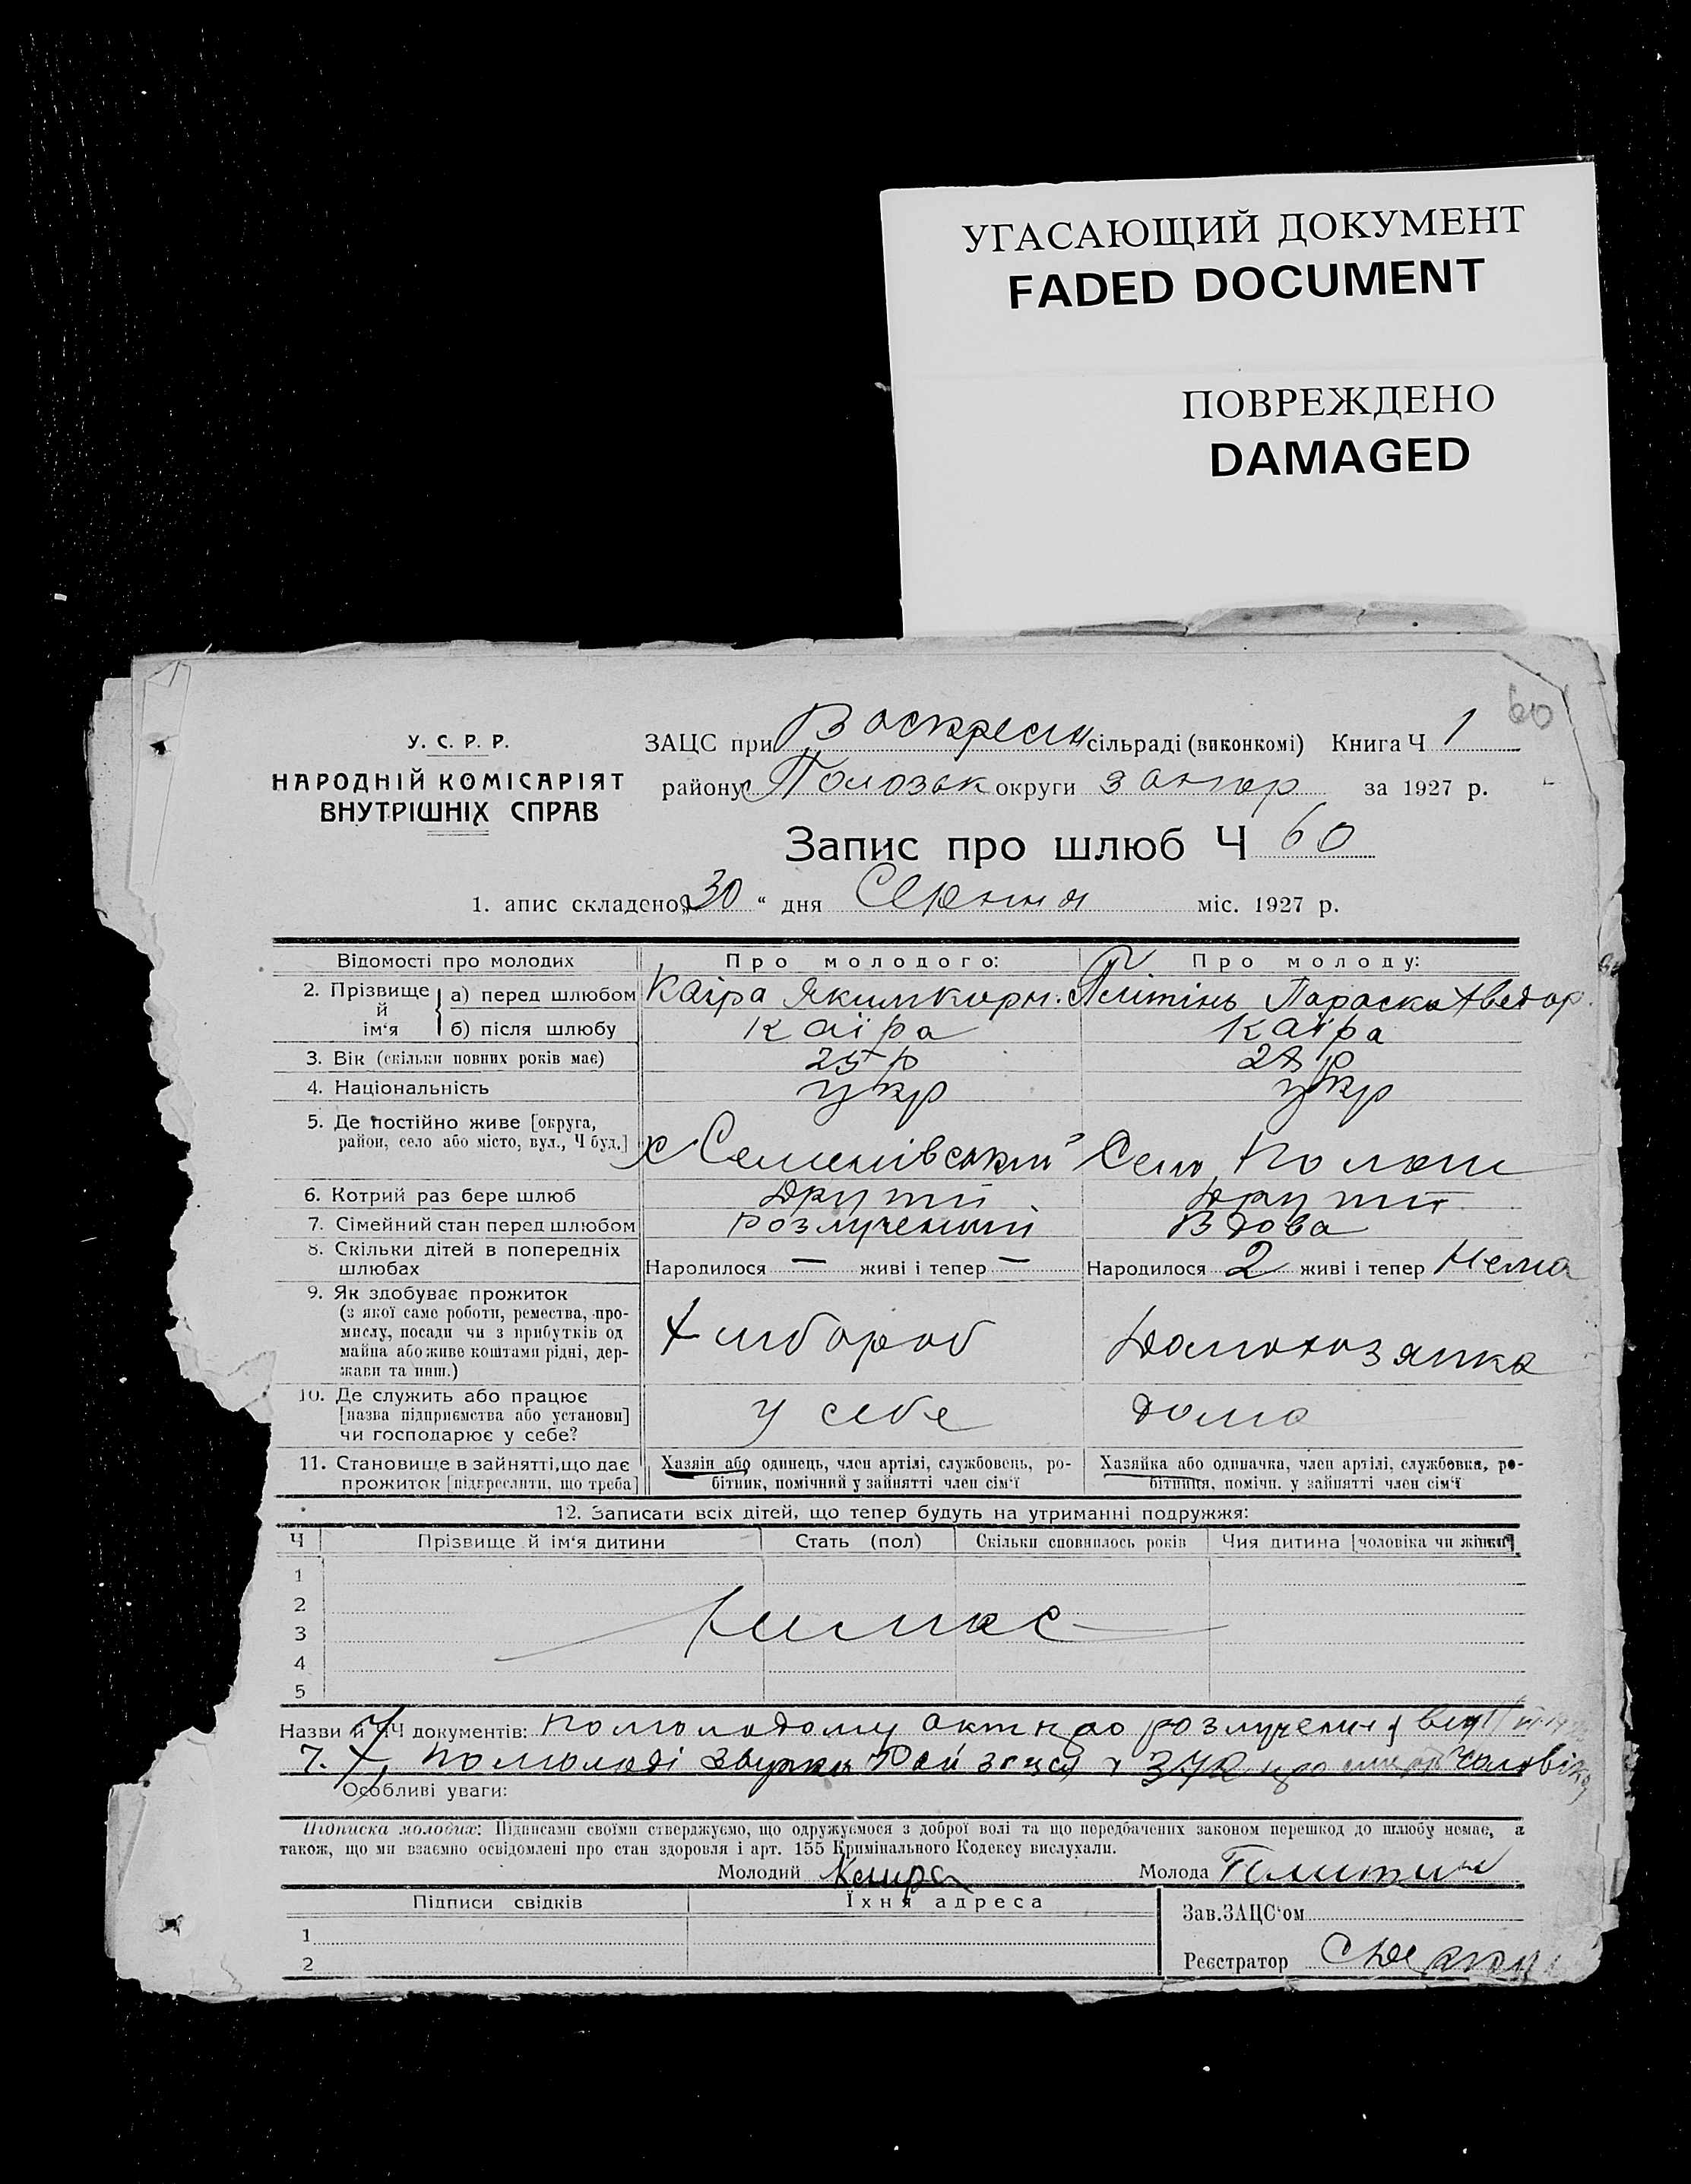 УГАСАЮЩИЙ ДОКУМЕНТ
FADED DOCUMENT
ПОВРЕЖДЕНО
DAMAGED
60
У. С. Р. Р.
НАРОДНІЙ КОМІСАРІЯТ
ВНУТРІШНІХ СПРАВ
ЗАЦС при Воскресен сільраді (виконкомі) Книга Ч 1
району Полозьк округи Запор за 1927 р.
Запис про шлюб Ч 60
1. апис складено „30“ дня Серпня міс. 1927 р.
Відомості про молодих Про молодого: Про молоду:
2. Прізвище й ім'я а) перед шлюбом Каіра Яким Корн. Параска Хведор.
б) після шлюбу Каїра Каїра
3. Вік (скільки повних років має) 25 р р
4. Національність укр укр
5. Де постійно живе [округа,
район, село або місто, вул., Ч буд.] х Семенівський Село Пологи
6. Котрий раз бере шлюб другий другий
7. Сімейний стан перед шлюбом розлучений вдова
8. Скільки дітей в попередніх
шлюбах Народилося — живі і тепер — Народилося 2 живі і тепер Нема
9. Як здобуває прожиток
(з якої саме роботи, ремества, про-
мислу, посади чи з прибутків од
майна або живе коштами рідні, дер-
жави та инш.) Хлібороб Домохозяйка
10. Де служить або працює
[назва підприємства або установи]
чи господарює у себе? у себе дома
11. Становище в зайнятті, що дає
прожиток [підкреслити, що треба]
Хазяїн або одинець, член артілі, службовець, ро-
бітник, помічний у зайнятті член сім'ї
Хазяйка або одиначка, член артілі, службовка, ро-
бітниця, помічн. у зайнятті член сім'ї
12. Записати всіх дітей, що тепер будуть на утриманні подружжя:
Ч Прізвище й ім'я дитини Стать (пол) Скільки сповнилось років Чия дитина [чоловіка чи жінки]
1
2
3
4
5
Немає
Назви й ЧЧ документів: По молодому акт про розлучення від
По молоді про смерть чоловіка
Особливі уваги:
Підписка молодих: Підписами своїми стверджуємо, що одружуємося з доброї волі та що передбачених законом перешкод до шлюбу немає, а
також, що ми взаємно освідомлені про стан здоровля і арт. 155 Кримінального Кодексу вислухали.
Молодий Каира Молода
Підписи свідків Їхня адреса
1
2
Зав. ЗАЦС'ом
Реєстратор